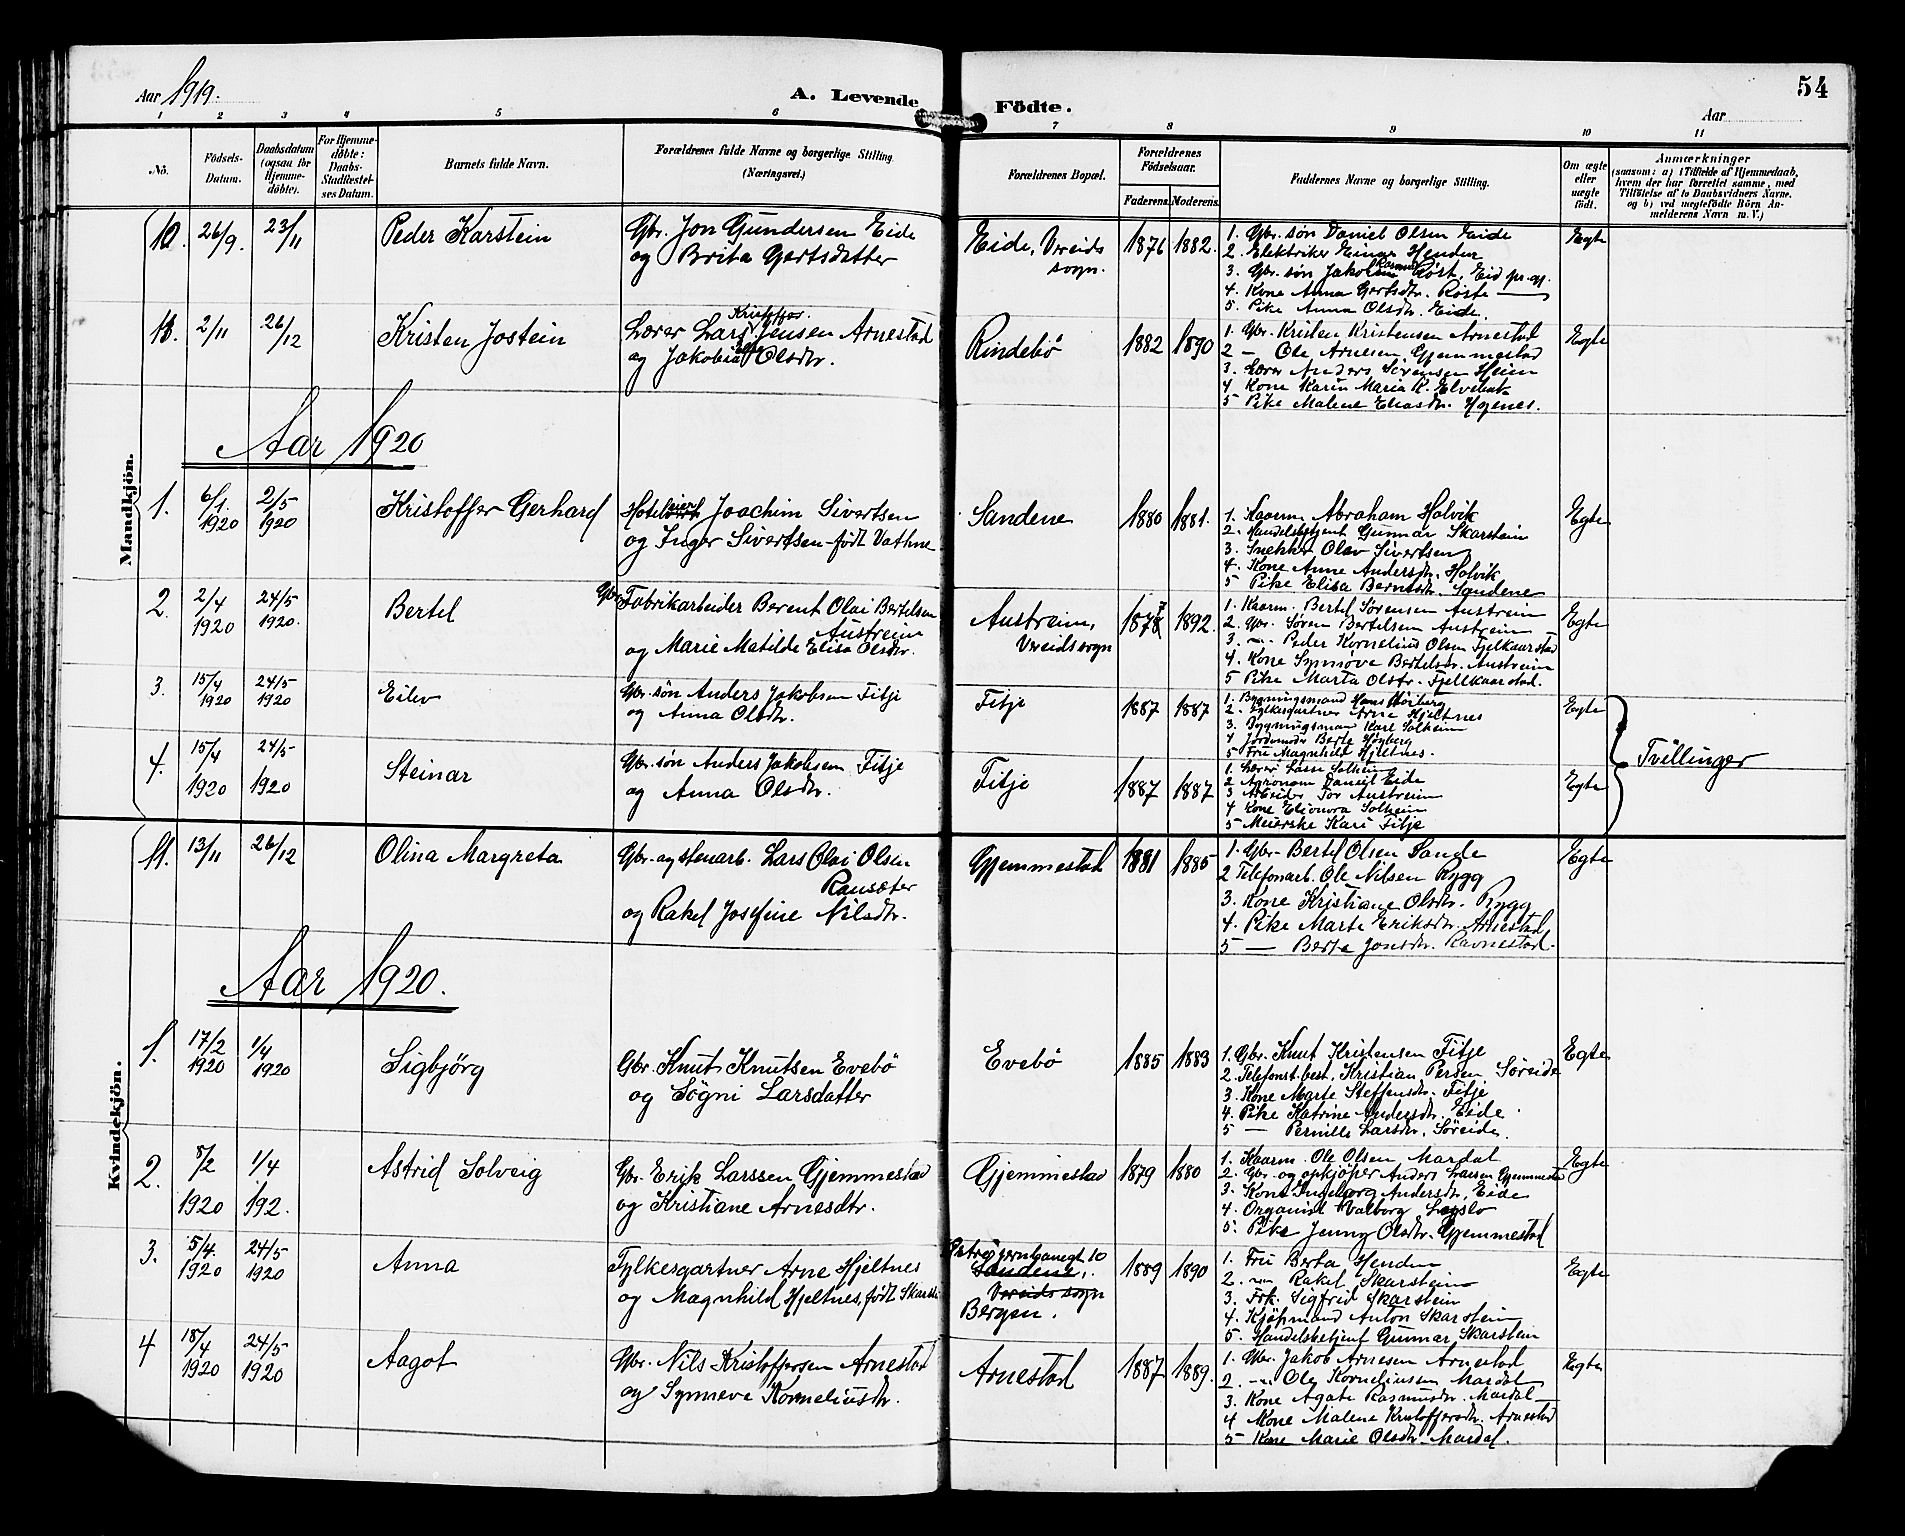 54
Aar 1919.
A. Levende Födte.
Aar
1 2 3 4 5 6 7 8 9 10 11
No.
Födsels-Datum.
Daabsdatum (ogsaa for Hjemme-döbte).
For Hjemme-döbte: Daabs-Stadfæstel-ses Datum.
Barnets fulde Navn.
Forældrenes fulde Navne og borgerlige Stilling (Næringsvei.)
Forældrenes Bopæl.
Forældrenes Födselsaar.
Faderens. Moderens.
Faddernes Navne og borgerlige Stilling.
Om ægte eller uægte født.
Anmærkninger
(saasom: a) i Tilfælde af Hjemmedaab,
hvem der har forrettet samme, med
Tilföielse af to Daabsvidners Navne.
og b) ved uegtefödte Börn An-
melderens Navn m. V.)
Mandkjön.
10. 26/9. 23/11 Peder Karstein
Gbr. Jon Gundersen Eide
og Brita Gertsdatter
Eide, Vereids
sogn.
1876 1882.
1. Gbr. søn Daniel Olsen Eide
2. Elektriker Einar Henden
3. Gbr. søn Jakob Røst, Eid pr.gj.
4. Kone Anna Gertsdtr. Røste
5. Pike Anna Olsdtr. Eide.
Egte
2/11 26/12 Kristen Jostein
Lærer Lars Kristoffer Jensen Arnestad
og Jakobia Olsdtr.
Rindebö
1882 1890
1. Gbr. Kristen Kristensen Arnestad
2 - Ole Arnesen Gjemmestad
3. Lærer Anders Sørensen Heien
4. Kone Karin Maria K. Elvebak
5 Pike Malene Eliasdtr. Hognes.
Egte
Aar 1920
1. 6/1 1920 2/5 1920 Kristoffer Gerhard
Hoteleier Joachim Sivertsen
og Inger Sivertsen - født Vathne
Sandene
1880 1881.
1. Kaarm. Abraham Holvik
2. Handelsbetjent Gunnar Skarstein
3. Snekker Olav Sivertsen
4. Kone Anne Andersdtr. Holvik
5 Pike Elisa Berntsdtr. Sandene
Egte
2. 2/4 1920 24/5 1920. Bertel
Gbr. Fabrikarbeider Berent Olai Bertelsen
Austreim
og Marie Matilde Elisa Olsdtr.
Austreim,
Vereids sogn
1878 1892.
1. Kaarm. Bertel Sørensen Austreim
2. Gbr. Søren Bertelsen Austreim
3. -"- Peder Kornelius Olsen Fjelkaarstad
4. Kone Synnøve Bertelsdr. Austreim
5 Pike Marta Olsdtr. Fjellkaarstad.
Egte
3. 15/4 1920 24/5 1920 Eilev
Gbr. søn Anders Jakobsen Fitje
og Anna Olsdtr.
Fitje
1887 1887
1. Bygningsmand Hans Høiberg
2. Fylkesgartner Arne Hjeltnes
3. Bygningsmand Karl Solheim
4 Jordmoder Berte Høyberg
5 Fru Magnhild Hjeltnes.
Egte
Tvillinger
4. 15/4 1920 24/5 1920 Steinar
Gbr. søn Anders Jakobsen Fitje
og Anna Olsdtr.
Fitje
1887 1887
1. Lærer Lasse Solheim
2 Agronom Daniel Eide
3 Arbeider Tor Austreim
4 Kone Elionora Solheim
5 Meierske Kari Fitje
Egte
Kvindekjön.
11. 13/11 26/12 Olina Margreta
Gbr. og stenarb. Lars Olai Olsen
Ransæter
og Rakel Josefine Nilsdtr.
Gjemmestad
1881 1885
1. Gbr. Bertel Olsen Sande
2 Telefonarb. Ole Nilsen Rygg
3. Kone Kristiane Olsdtr. Rygg
4. Pike Marte Eriksdtr. Arnestad
5 - Berta Jonsdtr. Ravnestad.
Egte
Aar 1920.
1. 17/2 1920 1/4 1920 Sigbjörg
Gbr. Knut Knutsen Evebö
og Sögni Larsdatter
Evebö
1885 1883
1. Gbr. Knut Kristensen Fitje
2. Telefonst.best. Kristian Persen Söreide
3. Kone Marte Steffensdtr. Fitje
4. Pike Katrine Andersdtr. Eide
5 - Pernille Larsdtr. Söreide.
Egte
2. 8/2 1920 1/4 192. Astrid Solveig
Gbr. Erik Larssen Gjemmestad
og Kristiane Arnesdtr.
Gjemmestad
1879 1880
1. Kaarm. Ole Olsen Mardal
2. Gbr. og opkjöper Anders Larsen Gjemmestad
3. Kone Ingeborg Andersdtr. Eide
4. Organist Valborg
5. Pike Jenny Olsdtr. Gjemmestad
Egte
3. 5/4. 1920 24/5 1920 Anna
Fylkesgartner Arne Hjeltnes
og Magnhild Hjeltnes, født Skarste
10
Sandene,
Vereids sogn
Bergen.
1889 1890
1. Fru Berta Henden
2. -"- Rakel Skarstein
3. Frk. Sigfrid Skarstein
4. Kjöpmand Anton Skarstein
5. Handelsbetjent Gunnar Skarstein
Egte
4 18/4 1920 24/5 1920 Aagot
Gbr. Nils Kristoffersen Arnestad
og Synneve Korneliusdtr.
Arnestad
1887 1889.
1. Gbr. Jakob Arnesen Arnestad
2. -"- Ole Korneliussen Mardal
3. Kone Agate Rasmusdtr. Mardal
4 Kone Malene Kristoffersdtr. Arnestad
5 Kone Marie Olsdtr. Mardal.
Egte